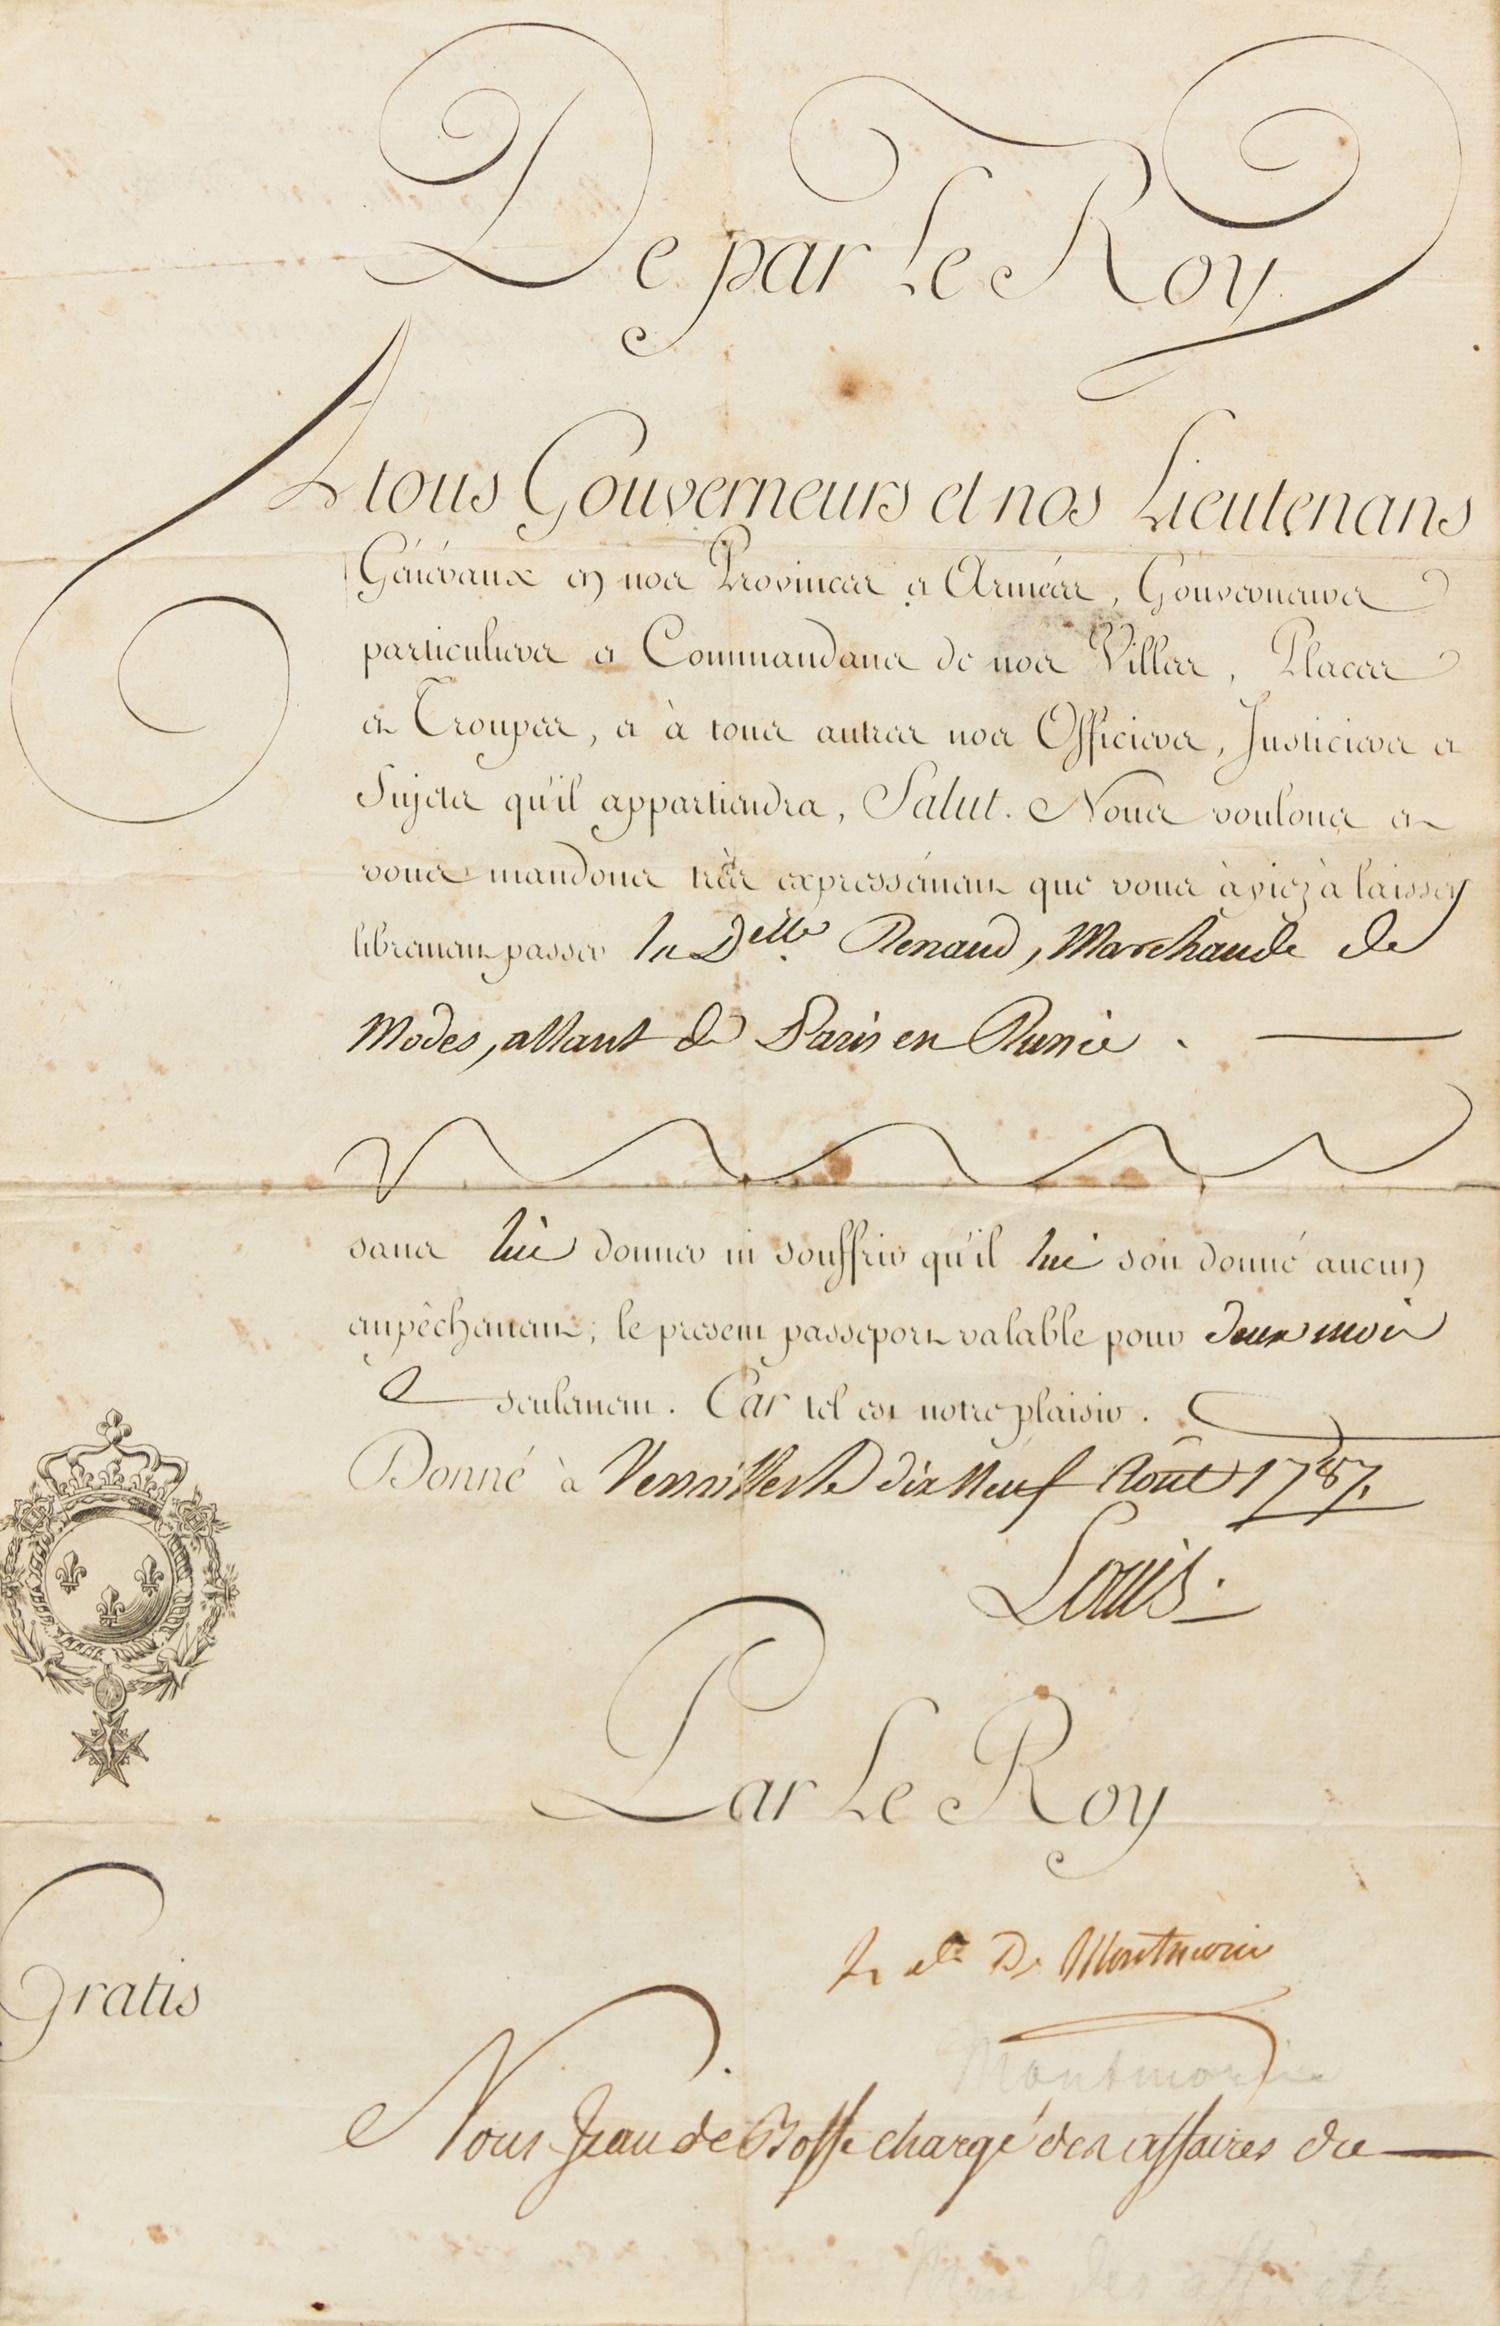 De par Le Roy
A tous Gouverneurs et nos Lieutenans
Généraux en nos Provinces et Armées, Gouverneurs
particuliers et Commandans de nos Villes, Places
et Troupes, et à tous autres nos Officiers, Justiciers et
Sujets qu'il appartiendra, Salut. Nous voulons et
vous mandons très expressément que vous àyiez à laisser
librement passer la Delle Renaud, Marchande de
Modes, allant de Paris en Russie.
sans lui donner ni souffrir qu'il lui soit donné aucun
empêchement; le present passeport valable pour deux mois
seulement. Car tel est notre plaisir.
Donné à Versailles le dix Neuf Août 1787.
Louis
Par Le Roy
Le Cte De Montmorin
Gratis
Montmorin
Nous Jean de chargé des affaires de
Min des aff etr